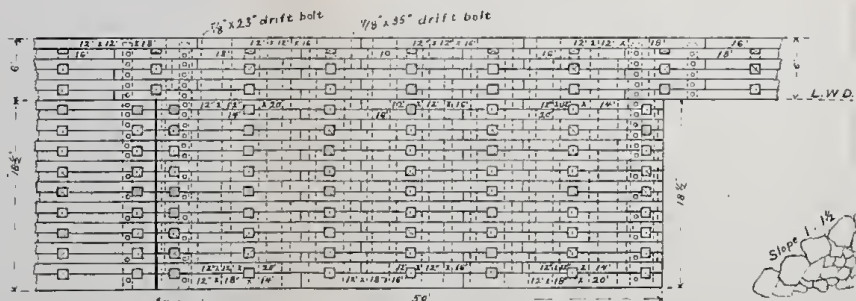 7/8" x 23" drift bolt
7/8" x 35" drift bolt
12" x 12" x 18'
12" x 12" x 16'
12" x 12" x 16'
12" x 12" x 18'
16'
16'
18'
16'
18'
6'
6'
L.W.D.
12" x 12" x 20'
12" x 12" x 16'
14'
14'
14'
20'
18½'
18½'
Slope 1 : 1½
12" x 12" x 20'
12" x 12" x 16'
14'
12" x 18" x 14'
12" x 18" x 16'
12" x 18" x 20'
50'